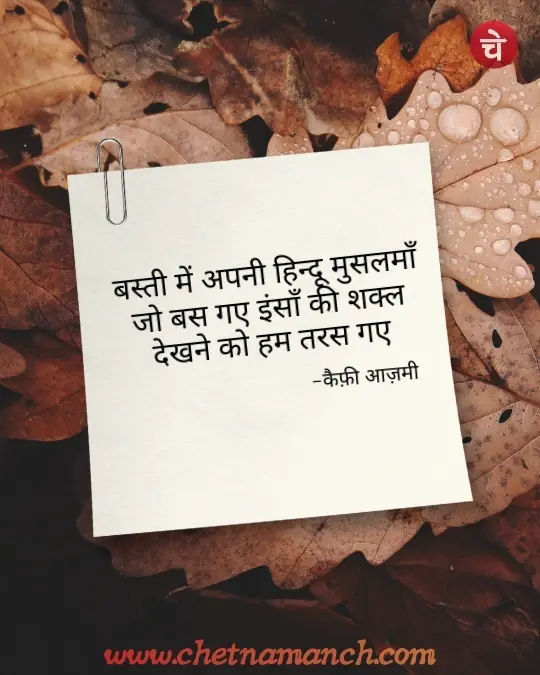 चे
बस्ती में अपनी हिन्दू मुसलमाँ
जो बस गए इंसाँ की शक्ल
देखने को हम तरस गए
-कैफ़ी आज़मी
www.chetnamanch.com